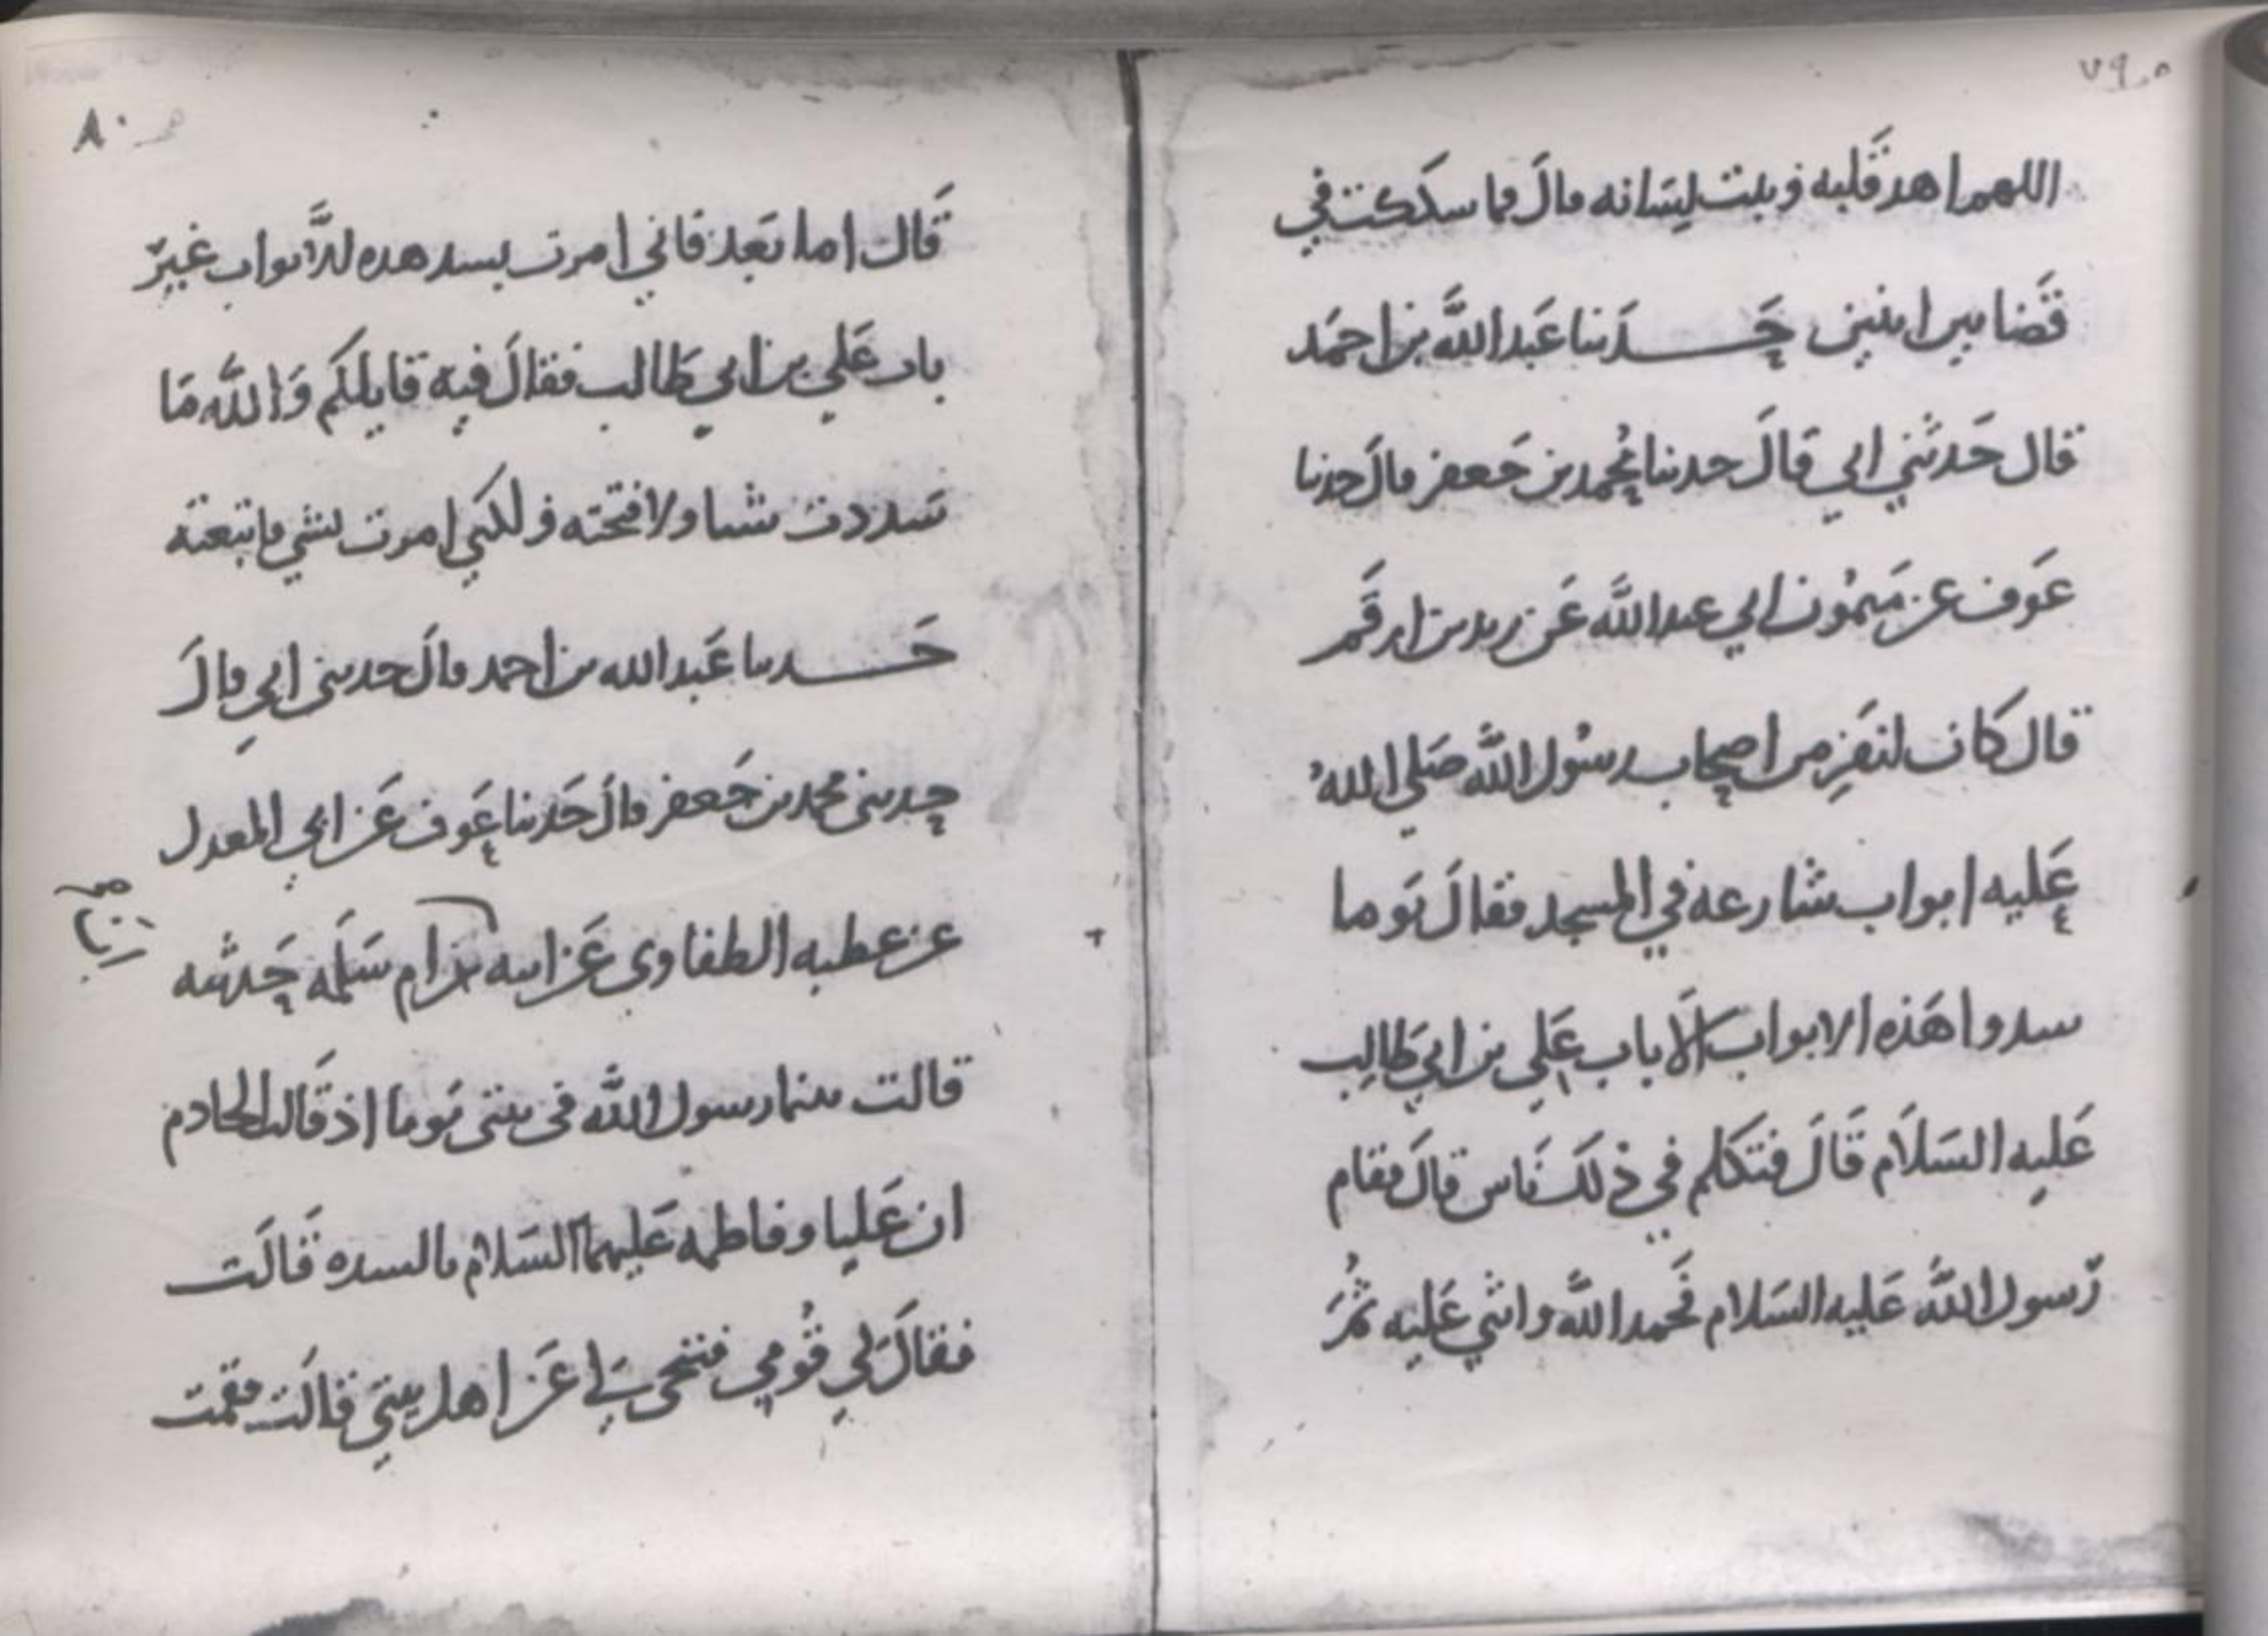 ٧٩
اللهم اهد قلبه وثبت لسانه قال فما شككت في
قضا بين اثنين حدثنا عبد الله بن احمد
قال حدثني ابي قال حدثنا محمد بن جعفر قال حدثنا
عوف عن ميمون ابي عبد الله عن زيد بن ارقم
قال كان لنفر من اصحاب رسول الله صلي الله
عليه ابواب شارعة في المسجد فقال يوما
سدوا هذه الابواب الا باب علي بن ابي طالب
عليه السلام قال فتكلم في ذلك ناس قال فقام
رسول الله عليه السلام فحمد الله واثني عليه ثم
٨٠
قال اما بعد فاني امرت بسد هذه الابواب غير
باب علي بن ابي طالب فقال فيه قايلكم والله ما
سددت شيا ولا فتحته ولكني امرت بشي فاتبعته
حدثنا عبد الله بن احمد قال حدثني ابي قال
حدثني محمد بن جعفر قال حدثنا عوف عن ابي المعدل
عن عطيه الطفاوي عن ابيه ان ام سلمه حدثته
قالت بينما رسول الله في بيتي يوما اذ قالت الخادم
ان عليا وفاطمه عليهما السلام بالسده قالت
فقال لي قومي فتنحي لي عن اهل بيتي قالت فقمت